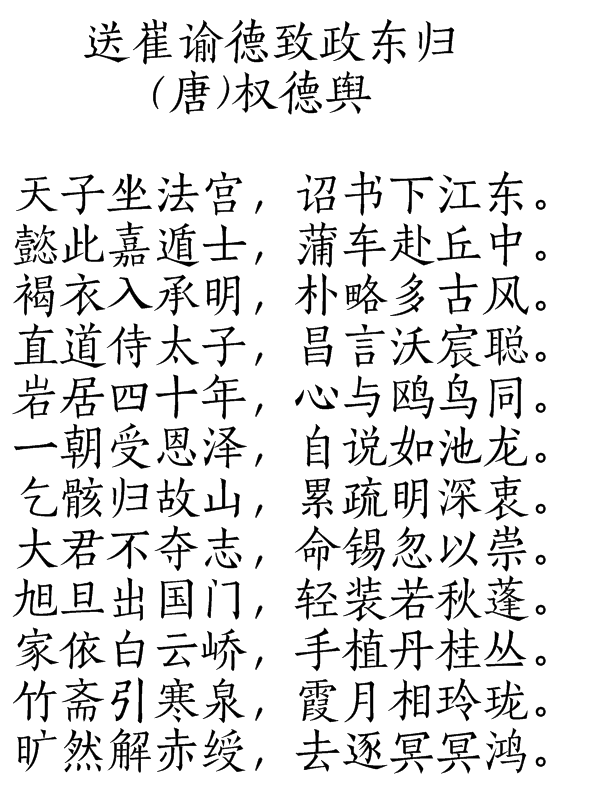 送崔谕德致政东归
(唐)权德舆
天子坐法宫，诏书下江东。
懿此嘉遁士，蒲车赴丘中。
褐衣入承明，朴略多古风。
直道侍太子，昌言沃宸聪。
岩居四十年，心与鸥鸟同。
一朝受恩泽，自说如池龙。
乞骸归故山，累疏明深衷。
大君不夺志，命锡忽以崇。
旭旦出国门，轻装若秋蓬。
家依白云峤，手植丹桂丛。
竹斋引寒泉，霞月相玲珑。
旷然解赤绶，去逐冥冥鸿。